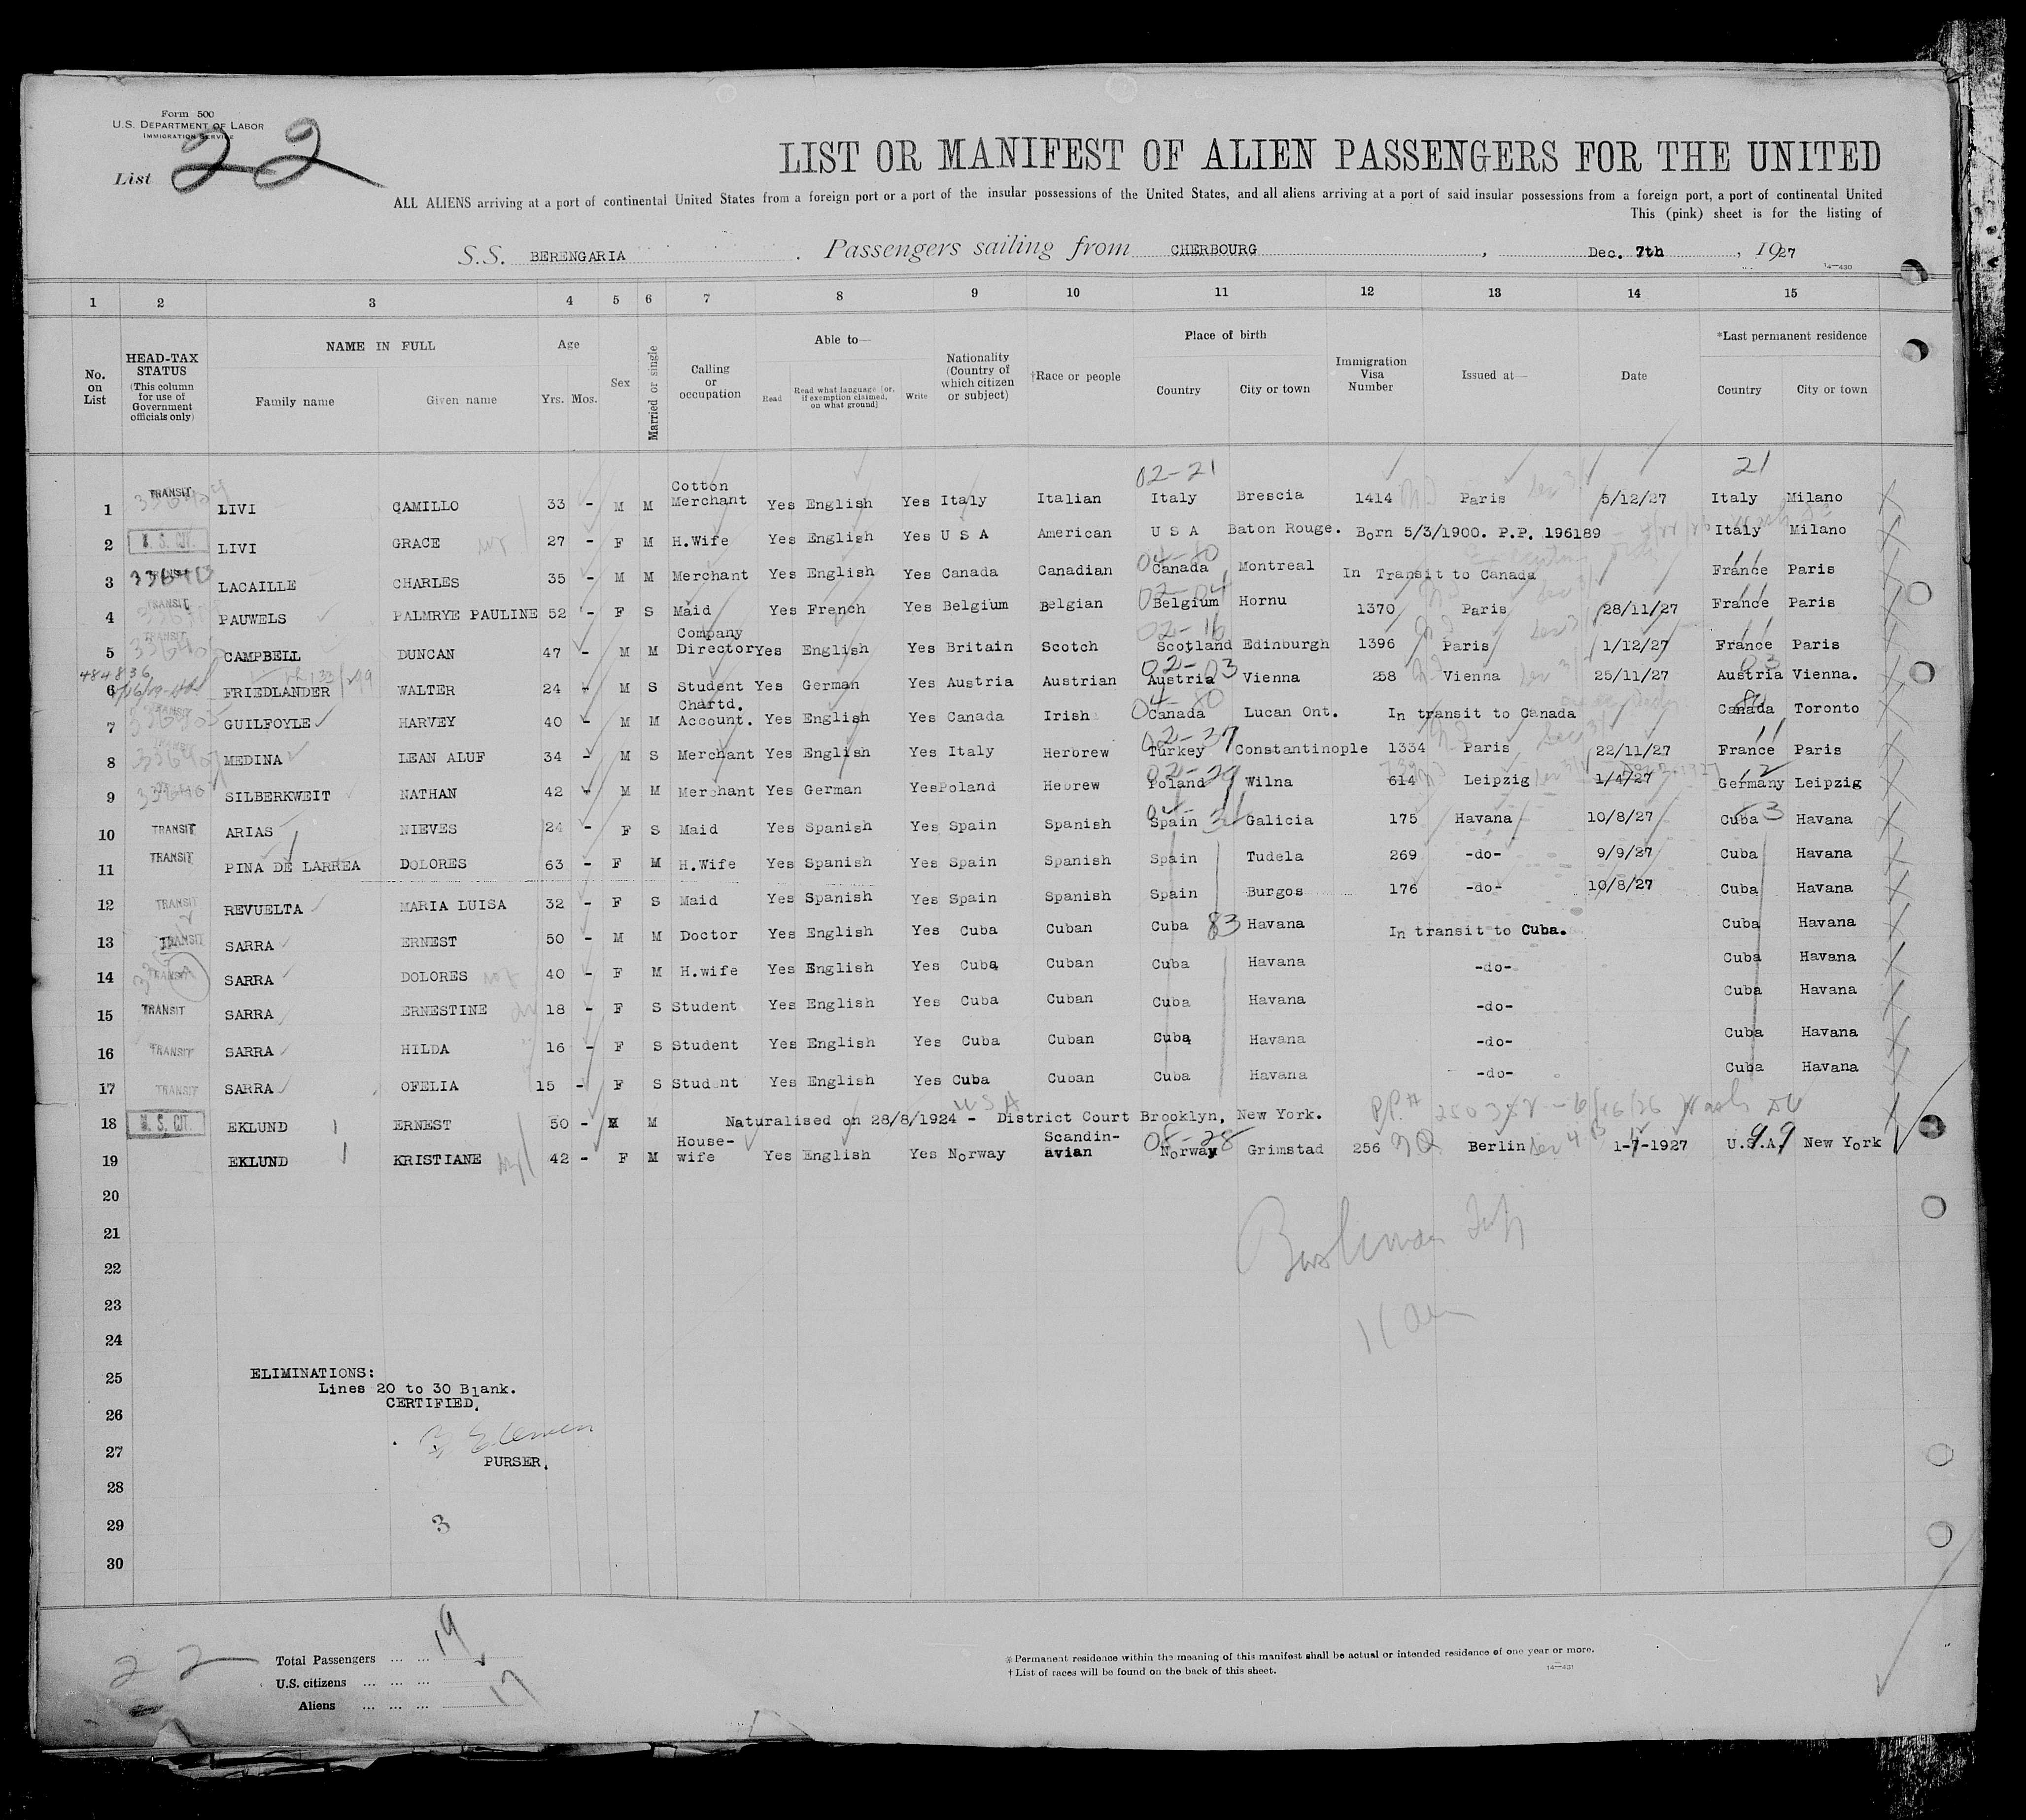 Form 500
U.S. DEPARTMENT OF LABOR
IMMIGRATION SERVICE
List 22
LIST OR MANIFEST OF ALIEN PASSENGERS FOR THE UNITED
ALL ALIENS arriving at a port of continental United States from a foreign port or a port of the insular possessions of the United States, and all aliens arriving at a port of said insular possessions from a foreign port, a port of continental United
This (pink) sheet is for the listing of
S.S. BERENGARIA. Passengers sailing from CHERBOURG, Dec. 7th, 1927
14—430
1 2 3 4 5 6 7 8 9 10 11 12 13 14 15
No. on List
HEAD-TAX STATUS (This column for use of Government officials only)
NAME IN FULL
Family name Given name
Age
Yrs. Mos.
Sex
Married or single
Calling or occupation
Able to—
Read Read what language [or, if exemption claimed, on what ground] Write
Nationality (Country of which citizen or subject)
†Race or people
Place of birth
Country City or town
Immigration Visa Number
Issued at—
Date
*Last permanent residence
Country City or town
02-21 21
1 TRANSIT LIVI CAMILLO 33 - M M Cotton Merchant Yes English Yes Italy Italian Italy Brescia 1414 Paris 5/12/27 Italy Milano
2 U. S. CIT. LIVI GRACE 27 - F M H.Wife Yes English Yes U S A American U S A Baton Rouge. Born 5/3/1900. P.P. 196189 Italy Milano
3 LACAILLE CHARLES 35 - M M Merchant Yes English Yes Canada Canadian Canada Montreal In Transit to Canada France Paris
4 TRANSIT PAUWELS PALMRYE PAULINE 52 - F S Maid Yes French Yes Belgium Belgian Belgium Hornu 1370 Paris 28/11/27 France Paris
5 TRANSIT CAMPBELL DUNCAN 47 - M M Company Director Yes English Yes Britain Scotch 02-16 Scotland Edinburgh 1396 Paris 1/12/27 France Paris
484836
6 FRIEDLANDER WALTER 24 - M S Student Yes German Yes Austria Austrian 02-03 Austria Vienna 258 Vienna 25/11/27 03 Austria Vienna.
7 TRANSIT GUILFOYLE HARVEY 40 - M M Chartd. Account. Yes English Yes Canada Irish Canada Lucan Ont. In transit to Canada Canada Toronto
8 MEDINA LEAN ALUF 34 - M S Merchant Yes English Yes Italy Herbrew 02-37 Turkey Constantinople 1334 Paris 22/11/27 France Paris
9 SILBERKWEIT NATHAN 42 - M M Merchant Yes German Yes Poland Hebrew Poland Wilna 614 Leipzig 1/4/27 Germany Leipzig
10 TRANSIT ARIAS NIEVES 24 - F S Maid Yes Spanish Yes Spain Spanish Spain Galicia 175 Havana 10/8/27 Cuba Havana
11 TRANSIT PINA DE LARREA DOLORES 63 - F M H.Wife Yes Spanish Yes Spain Spanish Spain Tudela 269 -do- 9/9/27 Cuba Havana
12 TRANSIT REVUELTA MARIA LUISA 32 - F S Maid Yes Spanish Yes Spain Spanish Spain Burgos 176 -do- 10/8/27 Cuba Havana
13 TRANSIT SARRA ERNEST 50 - M M Doctor Yes English Yes Cuba Cuban Cuba 83 Havana In transit to Cuba. Cuba Havana
14 TRANSIT SARRA DOLORES 40 - F M H.wife Yes English Yes Cuba Cuban Cuba Havana -do- Cuba Havana
15 TRANSIT SARRA ERNESTINE 18 - F S Student Yes English Yes Cuba Cuban Cuba Havana -do- Cuba Havana
16 TRANSIT SARRA HILDA 16 - F S Student Yes English Yes Cuba Cuban Cuba Havana -do- Cuba Havana
17 TRANSIT SARRA OFELIA 15 - F S Student Yes English Yes Cuba Cuban Cuba Havana -do- Cuba Havana
18 U. S. CIT. EKLUND ERNEST 50 - M M Naturalised on 28/8/1924 - District Court Brooklyn, New York.
19 EKLUND KRISTIANE 42 - F M House-wife Yes English Yes Norway Scandin-avian Norway Grimstad 256 Berlin 1-7-1927 U.S.A. New York
20
21
22
23
24
25 ELIMINATIONS:
Lines 20 to 30 Blank.
CERTIFIED.
26
27
PURSER.
28
29 3
30
22
Total Passengers 19
U.S. citizens
Aliens 17
*Permanent residence within the meaning of this manifest shall be actual or intended residence of one year or more.
†List of races will be found on the back of this sheet.
14—431